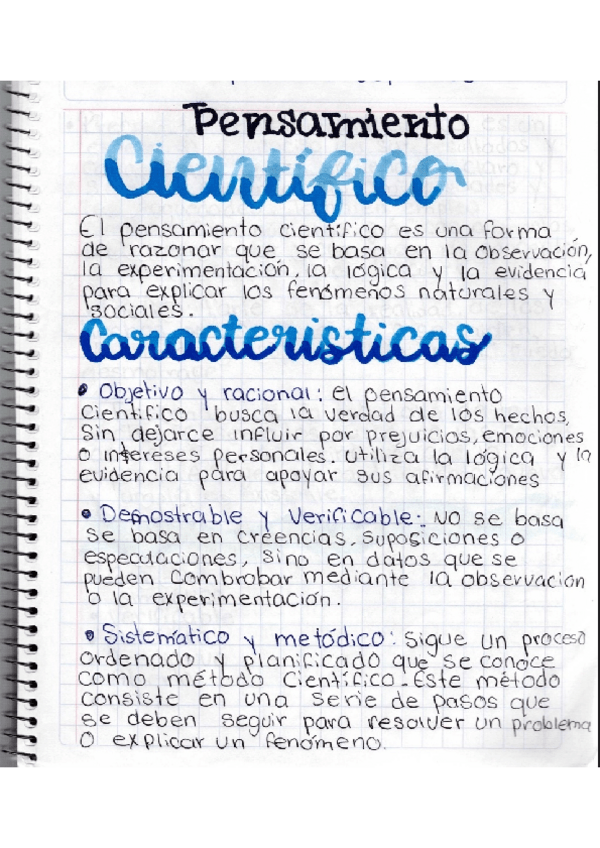 Pensamiento
Científico
El pensamiento científico es una forma
de razonar que se basa en la observación,
la experimentación, la lógica y la evidencia
para explicar los fenómenos naturales y
sociales.
Caracteristicas
• Objetivo y racional: el pensamiento
Cientifico busca la verdad de los hechos,
Sin dejarce influir por prejuicios, emociones
o intereses personales. Utiliza la lógica y la
evidencia para apoyar sus afirmaciones
• Demostrable y Verificable: No se basa
se basa en creencias, suposiciones o
especulaciones, sino en datos que se
pueden Combrobar mediante la observación
o la experimentación.
• Sistemático y metódico: Sigue un proceso
ordenado y planificado que se conoce
como método Científico. Este método
consiste en una serie de pasos que
se deben seguir para resolver un problema
o explicar un fenómeno.